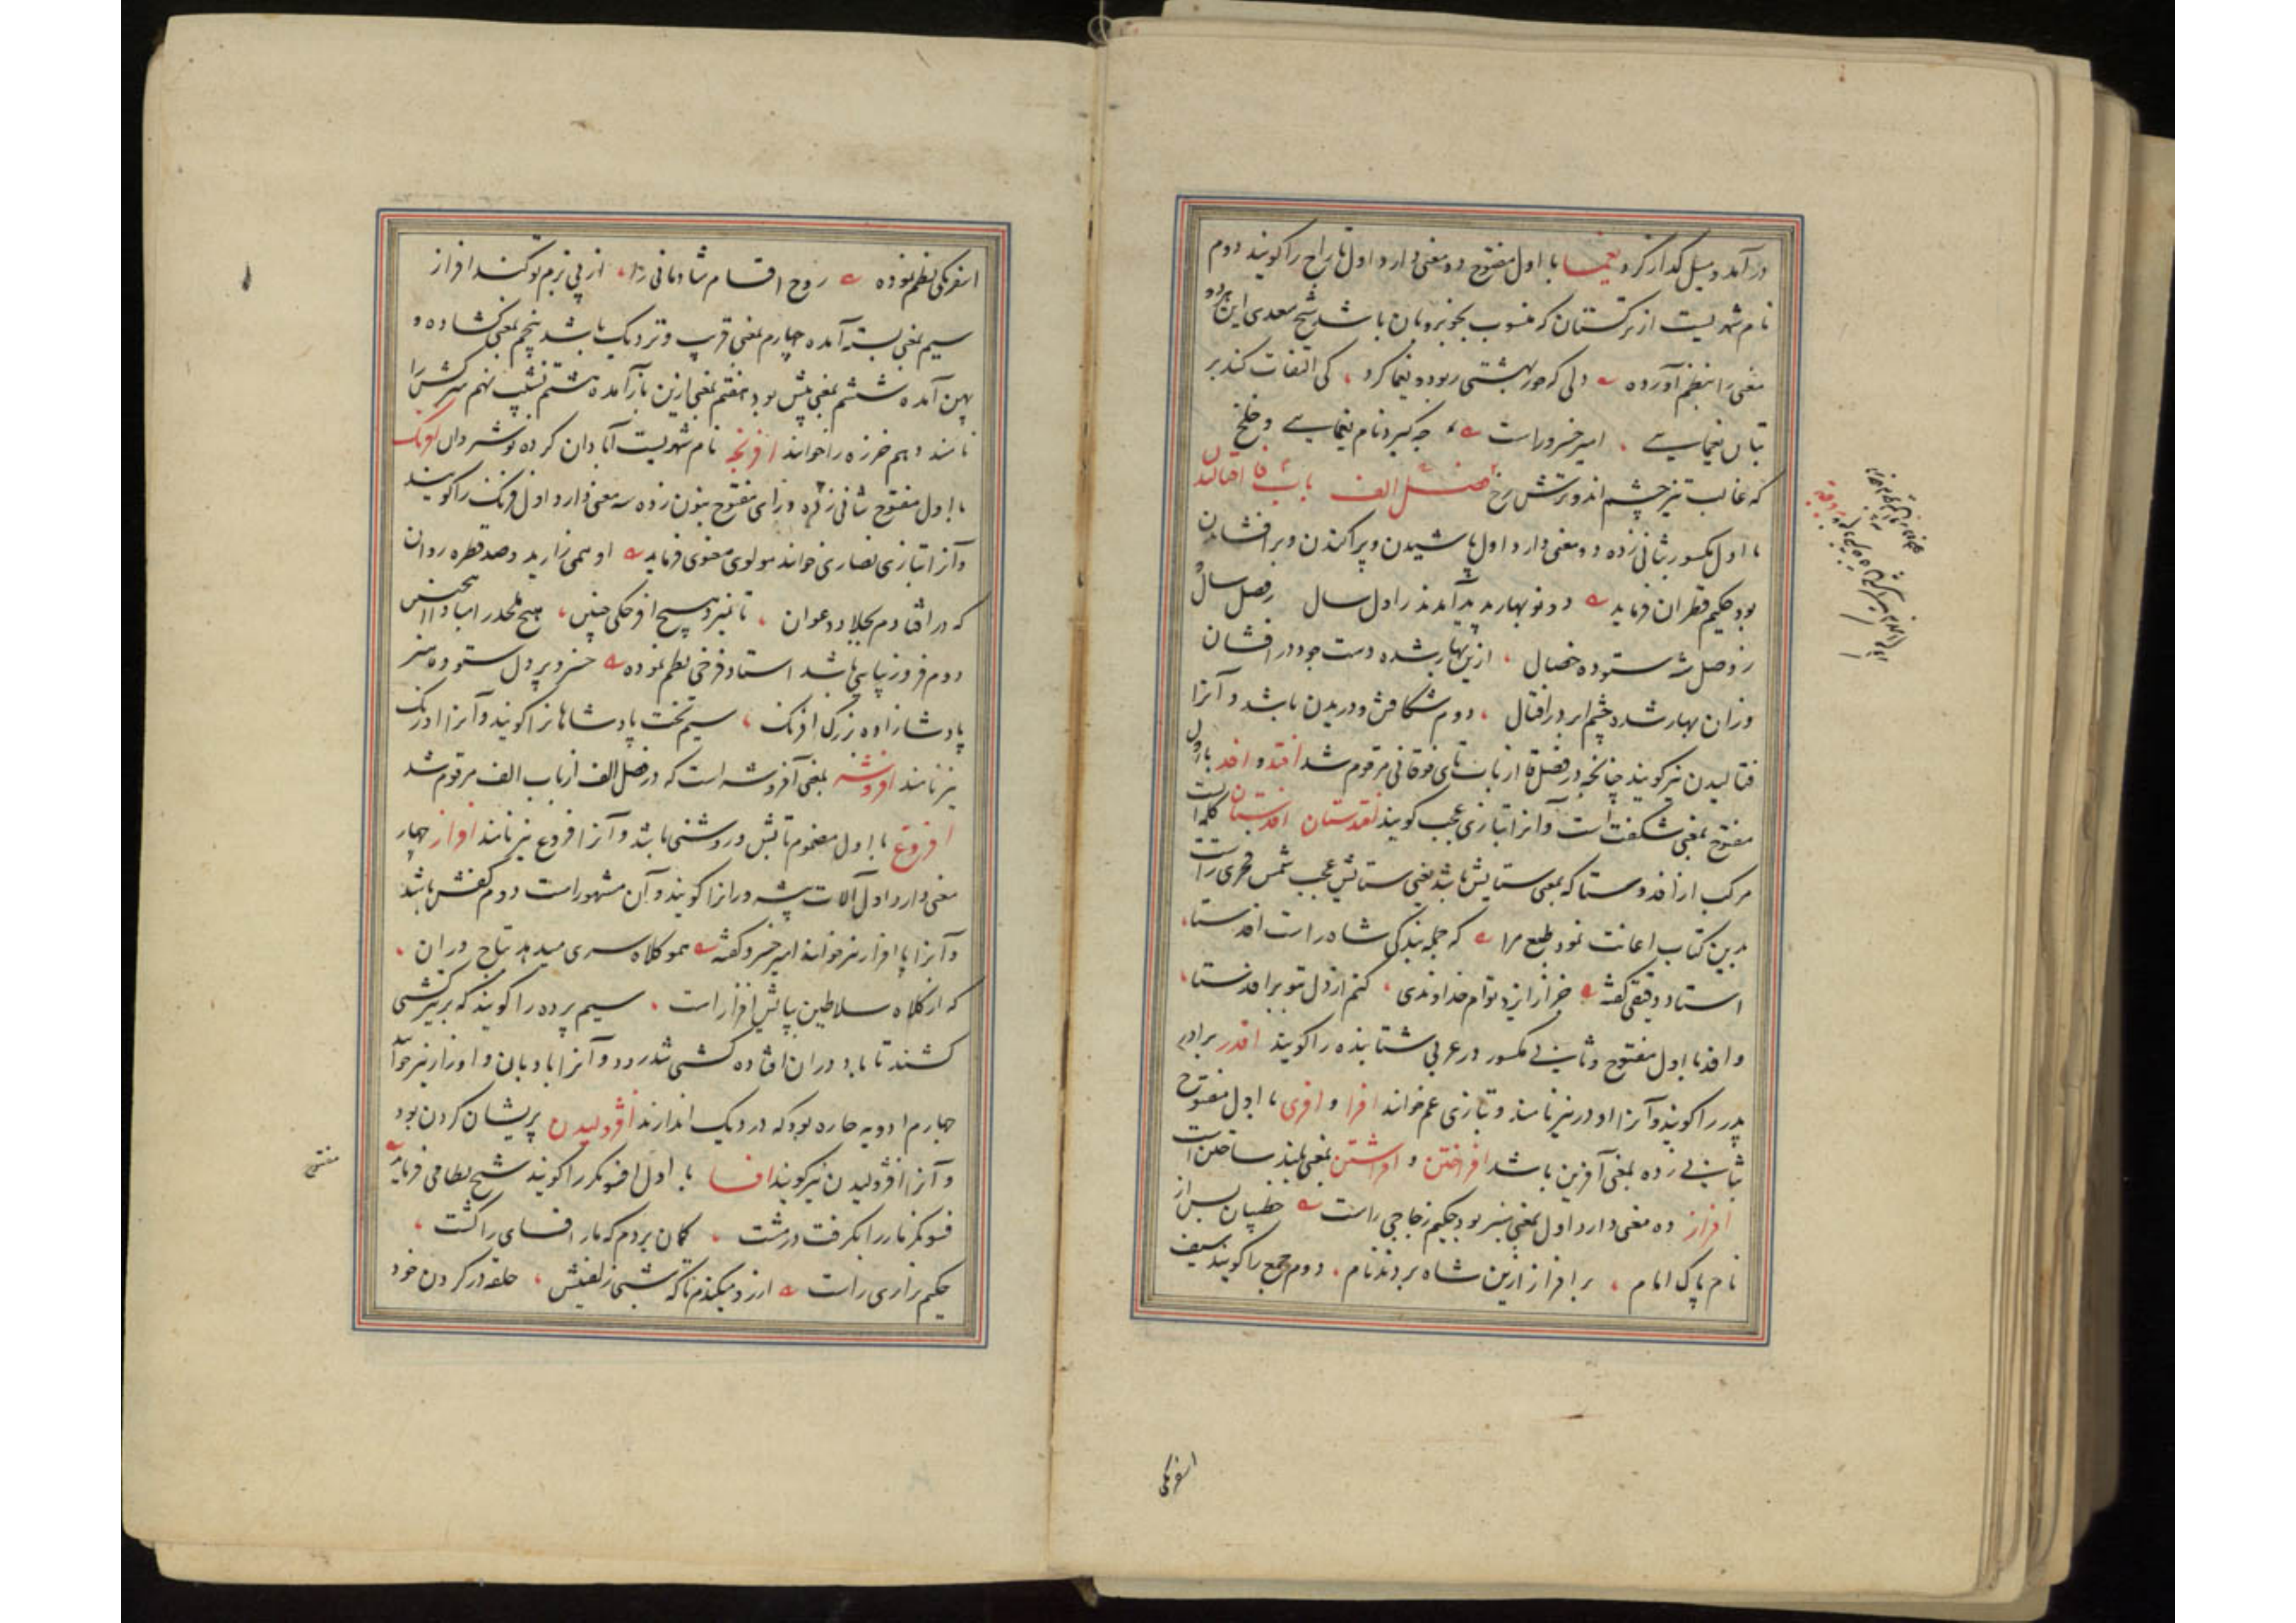 در آمد و میل گذار کرد یغما با اول مفتوح دو معنی دارد اول تاراج را گویند دوم
نام شهریست از ترکستان که منسوب بخوبرویان باشد شیخ سعدی این هر دو
معنی را بنظم آورده دلی که حور بهشتی ربود و یغما کرد کی التفات کند بر
بتان یغمایی امیر خسرو راست چه کیرد نام یغمایی و خلخ
که غالب تیز چشم اند و ترش رخ فصل الف باب فا افتالیدن
با اول مکسور بثانی زده دو معنی دارد اول پاشیدن و پراکندن و برافشاندن
بود حکیم قطران فرماید دو نوبهار پدید آمدند در اول سال ز فصل سال
ز وصل شه ستوده خصال ازین بهار شده دست جود در افشان
وزان بهار شده چشم ابر در افتال دوم شکافتن و دریدن باشد و آنرا
فتالیدن نیز گویند چنانچه در فصل فا از باب تای فوقانی مرقوم شد افتد و افد با اول
مفتوح بمعنی شگفت است و آنرا بتازی عجب گویند افدستان افدستا کلمه ایست
مرکب از افد و ستا که بمعنی ستایش باشد یعنی ستایش عجب شمس فخری راست
بدین کتاب اعانت نمود طبع مرا که جمله بندگی شاه راست افدستا
استاد دقیقی گفته جز از ایزد توام خداوندی کنم از دل بتو بر افدستا
و افد با اول مفتوح و ثانی مکسور در عربی شتابنده را گویند افدر برادر
پدر را گویند و آنرا اودر نیز نامند و بتازی عم خوانند افرا و افری با اول مفتوح
بثانی زده بمعنی آفرین باشد افراختن و افراشتن بمعنی بلند ساختن است
افراز ده معنی دارد اول بمعنی منبر بود حکیم زجاجی راست خطیبان پس از
نام پاک امام بر افراز ازین شاه بردند نام دوم جمع را گویند سیف
اسفرنگی
اسفرنگی نظم نموده روح اقسام شادمانی را از پی بزم تو کند افراز
سیم بمعنی بسته آمده چهارم بمعنی قریب و نزدیک باشد پنجم بمعنی گشاده و
پهن آمده ششم بمعنی پیش بود هفتم بمعنی ازین باز آمده هشتم نشیب نهم سرکش را
نامند دهم خرزه را خوانند افرنجه نام شهریست آبادان کرده نوشروان افرنگ
با اول مفتوح بثانی زده و رای مفتوح بنون زده سه معنی دارد اول فرنگ را گویند
و آنرا بتازی نصاری خوانند مولوی معنوی فرماید او همی زارید و صد قطره روان
که در افتادم بجلاد و عوان
دوم فر و زیبایی باشد استاد فرخی نظم نموده خسرو پر دل ستوده هنر
پادشازاده بزرگ افرنگ سیم تخت پادشاهانرا گویند و آنرا اورنگ
نیز نامند افروشه بمعنی آفروشه است که در فصل الف از باب الف مرقوم شد
افروغ با اول مضموم تابش و روشنی باشد و آنرا فروغ نیز نامند افزار چهار
معنی دارد اول آلات پیشه ورانرا گویند و آن مشهور است دوم کفش باشد
و آنرا پا افزار نیز خوانند امیر خسرو گفته همو کلاه سری میدهد بتاج وران
که از کلاه سلاطین بپایش افزار است سیم پرده را گویند که بر تیر کشتی
کشند تا باد در ان افتاده کشتی تند رود و آنرا بادبان و اوزار نیز خوانند
چهارم ادویه حاره بود که در دیگ اندازند افژولیدن پریشان کردن بود
و آنرا افژولیدن نیز گویند افسا با اول افسونگر را گویند شیخ نظامی فرماید
فسونگر مار را نگرفت در مشت گمان بردم که مار افسای را کشت
حکیم نزاری راست حلقه در کردن خود
مفتوح